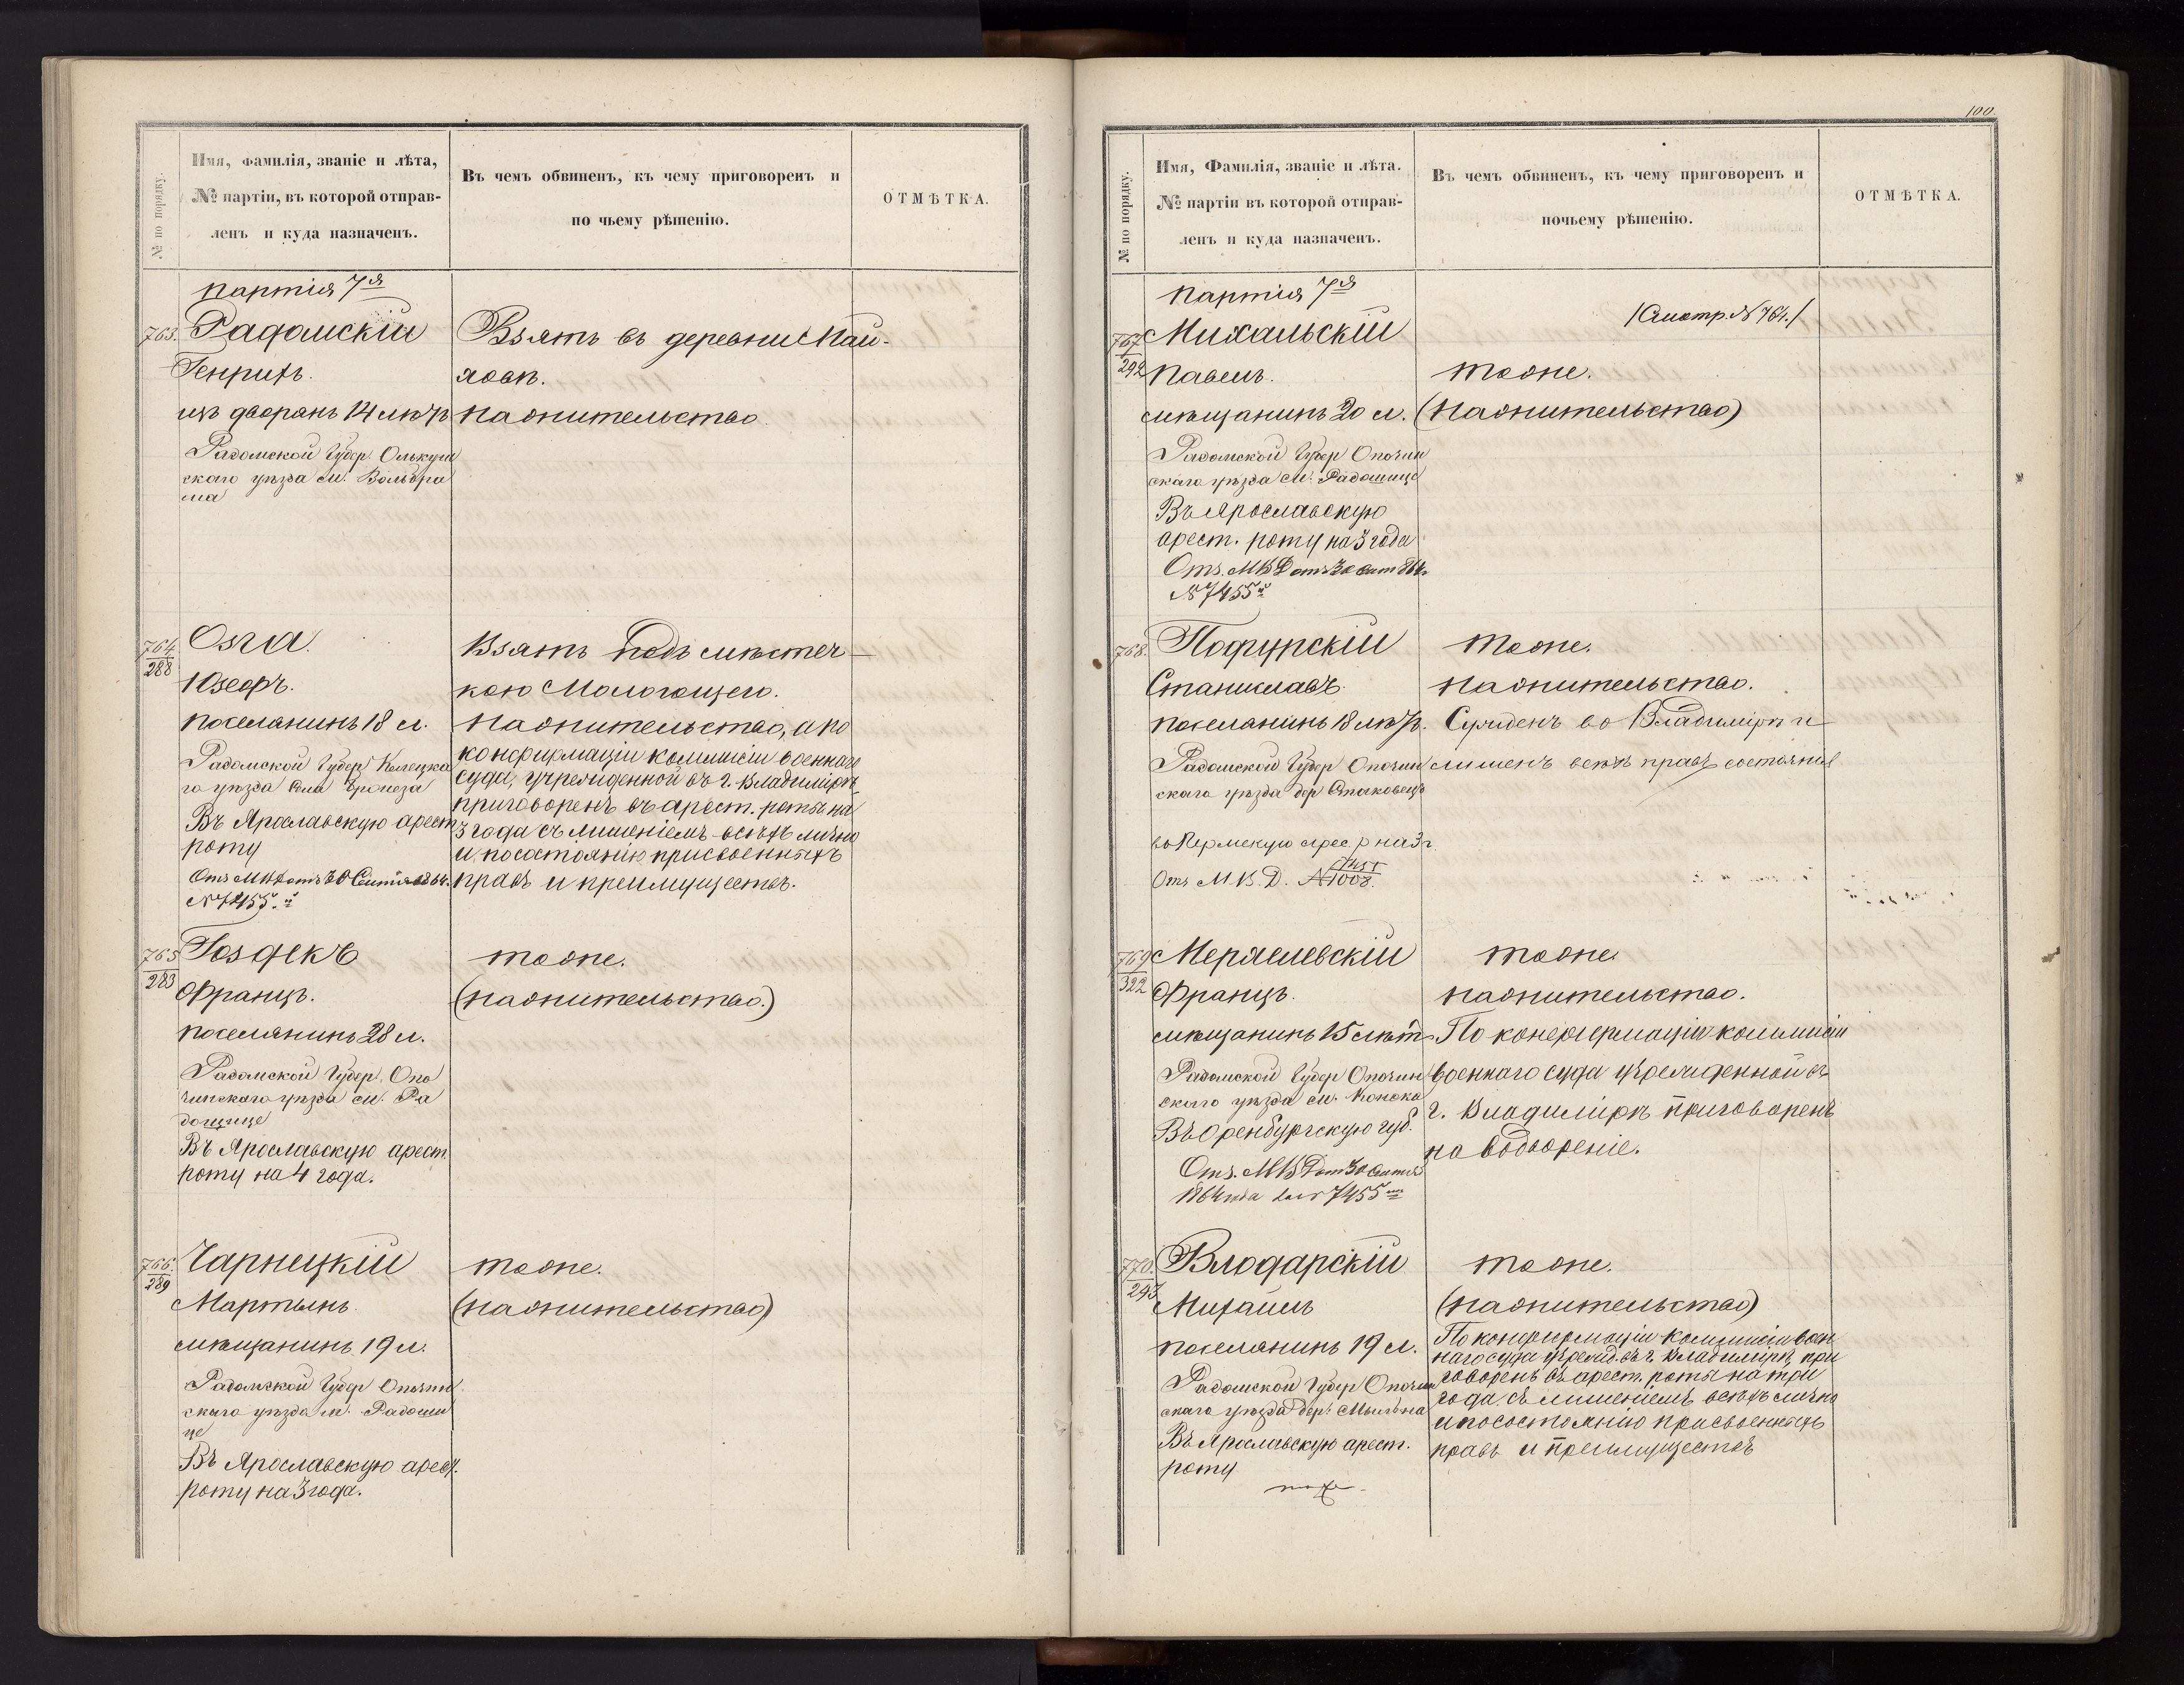 № по порядку.
Имя, фамилія, званіе и лѣта,
№ партіи, въ которой отправ-
ленъ и куда назначенъ.
Въ чемъ обвиненъ, къ чему приговоренъ и
по чьему рѣшенію.
ОТМѢТКА.
партія 7я
763. Радомскій
Генрихъ.
изъ дворянъ 14 лѣтъ
Радомской Губер. Олькуш
скаго уѣзда м. Вольбро
ма
Взятъ въ деревни
ловѣ.
пабжительство.
764/288 Озга.
Юзефъ.
поселянинъ 18 л.
Радомской Губер Келецка
го уѣзда
Въ Ярославскую арест
роту
Отз МВД отъ 30 Сентя 1864.
№7455.й
Взятъ подъ мѣстеч-
кою Малогощею.
на жительство, а по
конфирмаціи коммисіи военнаго
суда, учрежденной въ г. Владимірѣ,
приговоренъ въ арест. роты на
3 года съ лишеніемъ всѣхъ лично
и по состоянію присвоенныхъ
правъ и преимуществъ.
765/283 Гоздекъ
Францъ.
поселянинъ 28 л.
Радомской Губер. Опо
чинскаго уѣзда м. Ра
дощице
Въ Ярославскую арест.
роту на 4 года.
тоже.
(на жительство.)
766./289 Чарнецкій
Мартынъ.
мѣщанинъ 19 л.
Радомской Губер Опочин
скаго уѣзда м. Радоши
це
Въ Ярославскую арест.
роту на 3 года.
тоже.
(на жительство)
100.
№ по порядку.
Имя, Фамилія, званіе и лѣта.
№ партіи въ которой отправ-
ленъ и куда назначенъ.
Въ чемъ обвиненъ, къ чему приговоренъ и
почьему рѣшенію.
ОТМѢТКА.
партія 7я
/Смотр. №764./
767/292 Михальскій
Павелъ.
мѣщанинъ 20 л.
Радомской Губер Опочин
скаго уѣзда м. Радошице
Въ Ярославскую
арест. роту на 3 года
Отз. МВД отъ 30 Сент 864.
№7455й
тоже.
(на жительство)
768.
Станиславъ.
поселянинъ 18 лѣтъ.
Радомской Губер Опочин
скаго уѣзда дер
во Пермскую арес р на 3 г.
Отз М.В.Д. №1008.
тоже.
на жительство.
Сужденъ во Владимірѣ и
лишенъ всѣхъ правъ состоянія
769/322
Францъ.
мѣщанинъ 15 лѣтъ
Радомской Губер Опочин
скаго уѣзда м. Конска
Въ Оренбургскую губ.
Отз. МВД от 30 Сентя
1864 года за № 7455
тоже.
на жительство.
По конфирмаціи коммисіи
военнаго суда учрежденной въ
г. Владимірѣ приговоренъ
на водвореніе.
770./293 Влодарскій
Михаилъ
поселянинъ 19 л.
Радомской Губер Опочин
скаго уѣзда дер.
Въ Ярославскую арест.
роту
тоже.
тоже.
(на жительство)
По конфирмаціи коммисіи воен
наго суда учрежд. въ г. Владимірѣ, при
говоренъ въ арест. роты на три
года съ лишеніемъ всѣхъ лично
и по состоянію присвоенныхъ
правъ и преимуществъ